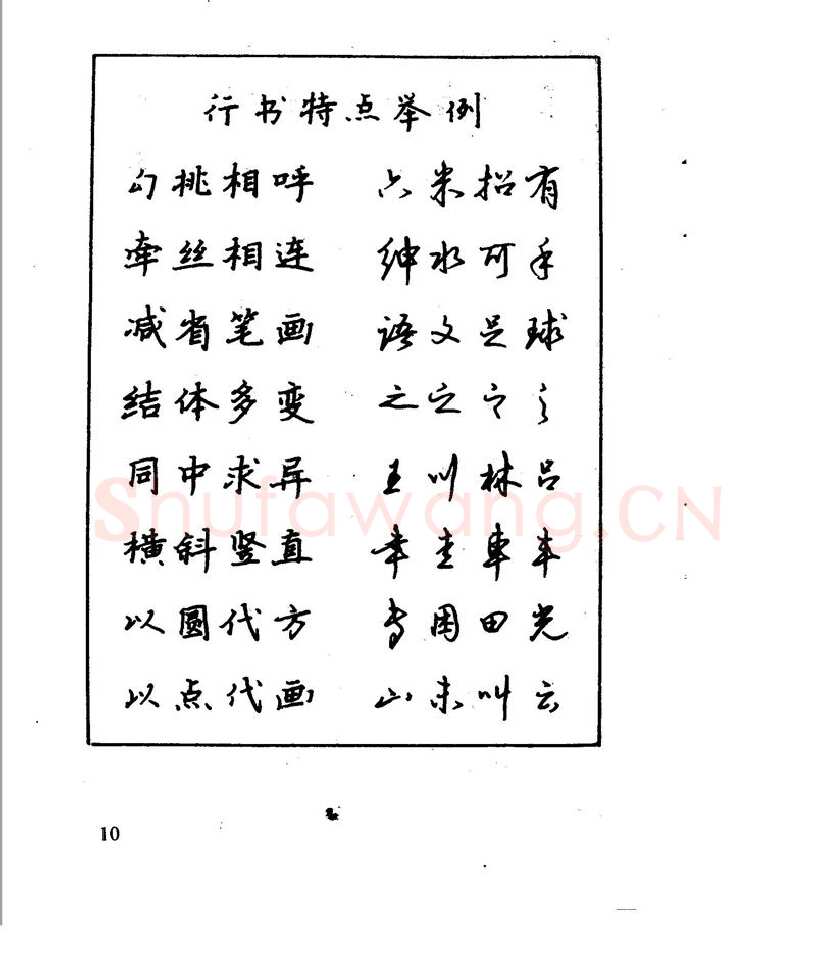 行书特点举例
勾挑相呼 六米招有
牵丝相连 绅水可手
减省笔画 语文足球
结体多变 之之之之
同中求异 王川林吕
横斜竖直 幸主車车
以圆代方 用田光
以点代画 山未叫云
Shufawang.CN
10